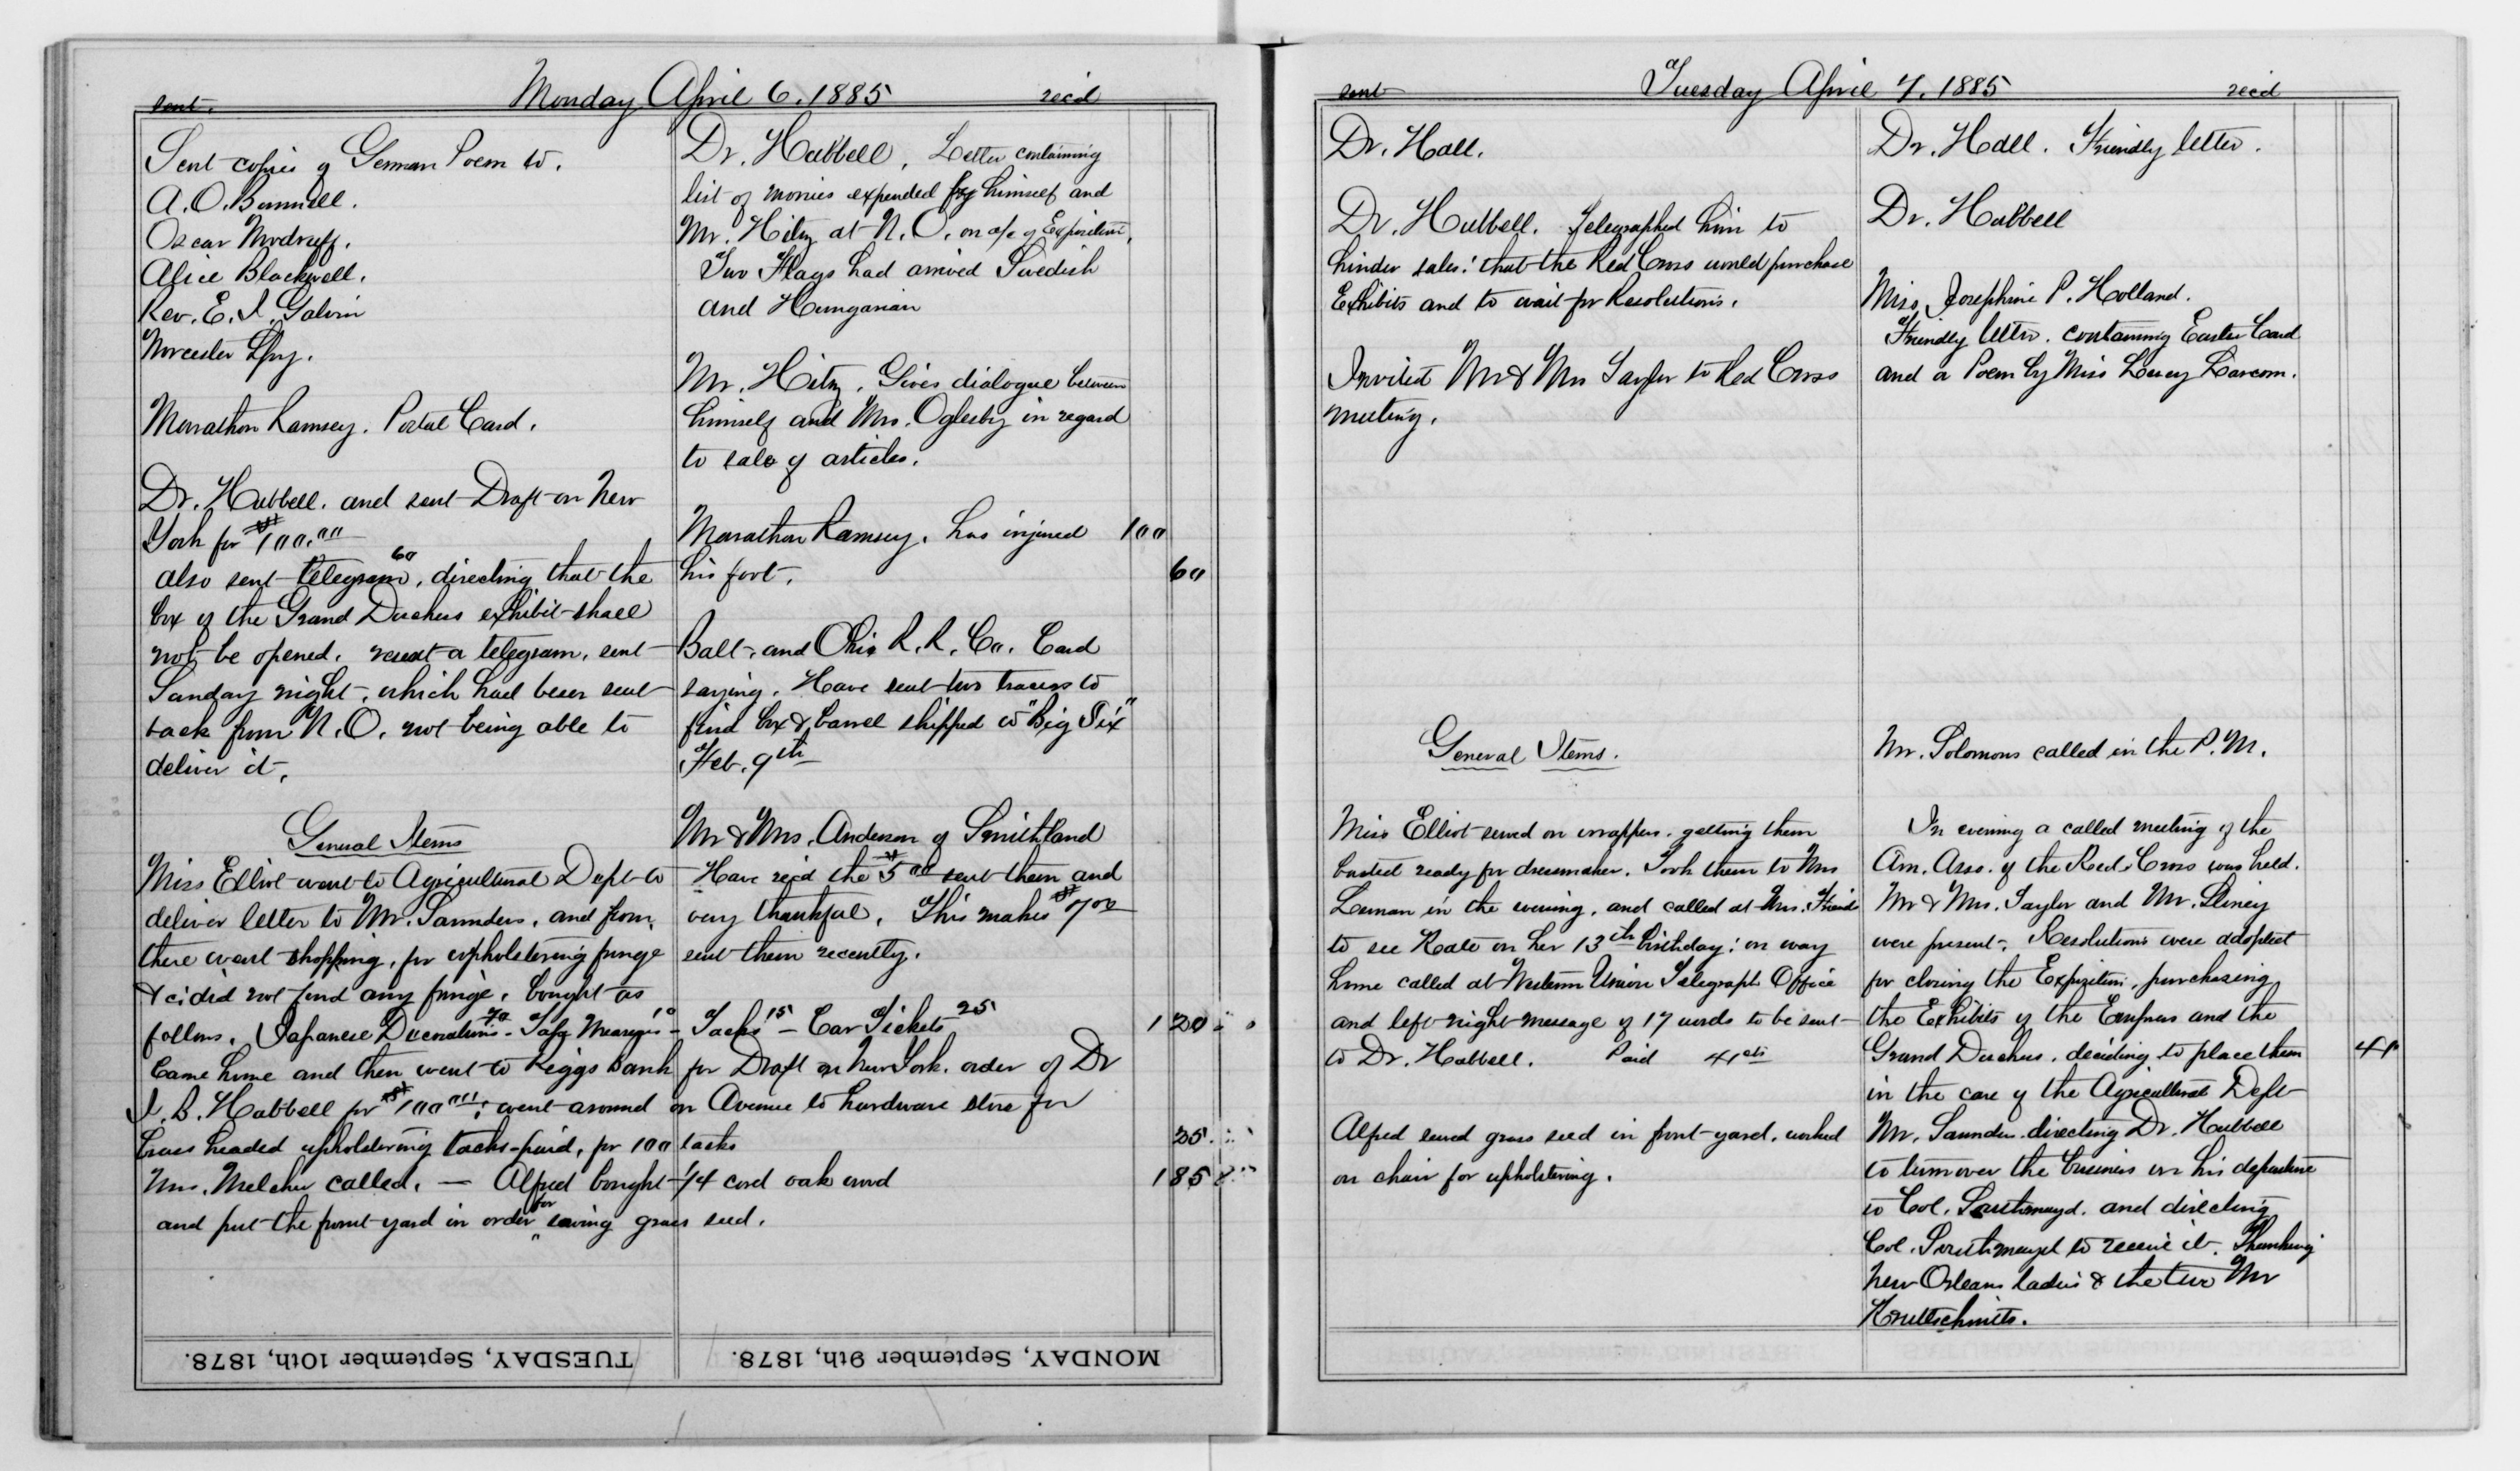 sent.
Monday April 6. 1885
rec'd
Sent copies of German Poem to.
A. O. Bunnell.
Oscar Wodruff.
Alice Blackwell.
Rev. E. I. Galvin
Worcester Spy.
Marathon Ramsey. Postal Card.
Dr. Hubbell. and sent Draft on New
York for $100.00
also sent telegram 60, directing that the
box of the Grand Duchess exhibit shall
not be opened. resent a telegram, sent
Sunday night, which had been sent
back from N. O. not being able to
deliver it.
Dr. Hubbell. Letter containing
list of monies expended by himself and
Mr. Hitz at N. O. on a/c of Exposition.
Two Flags had arrived Swedish
and Hungarian
Mr. Hitz. Gives dialogue between
himself and Mrs. Oglesby in regard
to sale of articles.
Marathon Ramsey. has injured 100
his foot. 60
Balt. and Ohio R. R. Co. Card
saying. Have sent two tracers to
find box & barrel shipped to "Big Six"
Feb. 9th
Mr & Mrs. Anderson of Smithland
Have rec'd the $5 00 sent them and
very thankful. This makes $7 00
sent them recently.
General Items
Miss Elliot went to Agricultural Dept to
deliver letter to Mr. Saunders, and from
there went shopping, for upholstering fringe
& c; did not find any fringe. bought as
follows. Japanese Decorations 70 - Tape Measures 10 - Tacks 15 - Car Tickets 25 1 20
Came home and then went to Riggs Bank for Draft on New York. order of Dr
J. B. Hubbell for $100 00; went around on Avenue to hardware store for
brass headed upholstering tacks - paid, for 100 tacks 25
Mrs. Melcher called. — Alfred bought 1/4 cord oak wood 1 85
and put the front yard in order for sowing grass seed.
TUESDAY, September 10th, 1878.
MONDAY, September 9th, 1878.
sent
Tuesday April 7. 1885
rec'd
Dr. Hall.
Dr. Hubbell. Telegraphed him to
hinder sales: that the Red Cross would purchase
Exhibits and to wait for Resolutions.
Invited Mr & Mrs Taylor to Red Cross
meeting.
Dr. Hall. Friendly letter.
Dr. Hubbell
Miss Josephine P. Holland.
Friendly letter. containing Easter Card
and a Poem by Miss Lucy Larcom.
General Items.
Miss Elliot sewed on wrappers. getting them
basted ready for dressmaker. Took them to Mrs
Leman in the evening, and called at Mrs.
to see Kate on her 13th birthday; on way
home called at Western Union Telegraph Office
and left night message of 17 words to be sent
to Dr. Hubbell. Paid 41cts
Alfred sowed grass seed in front yard. worked
on chair for upholstering.
Mr. Solomons called in the P. M.
In evening a called meeting of the
Am. Asso. of the Red Cross was held.
Mr & Mrs. Taylor and Mr.
were present. Resolutions were adopted
for closing the Exposition, purchasing
the Exhibits of the Empress and the
Grand Duchess. deciding to place them 41
in the care of the Agricultural Dept
Mr. Saunders. directing Dr. Hubbell
to turn over the business on his departure
to Col. Southmayd. and directing
Col. Southmayd to receive it. Thanking
New Orleans ladies & the two Mr
Kruttschnitts.